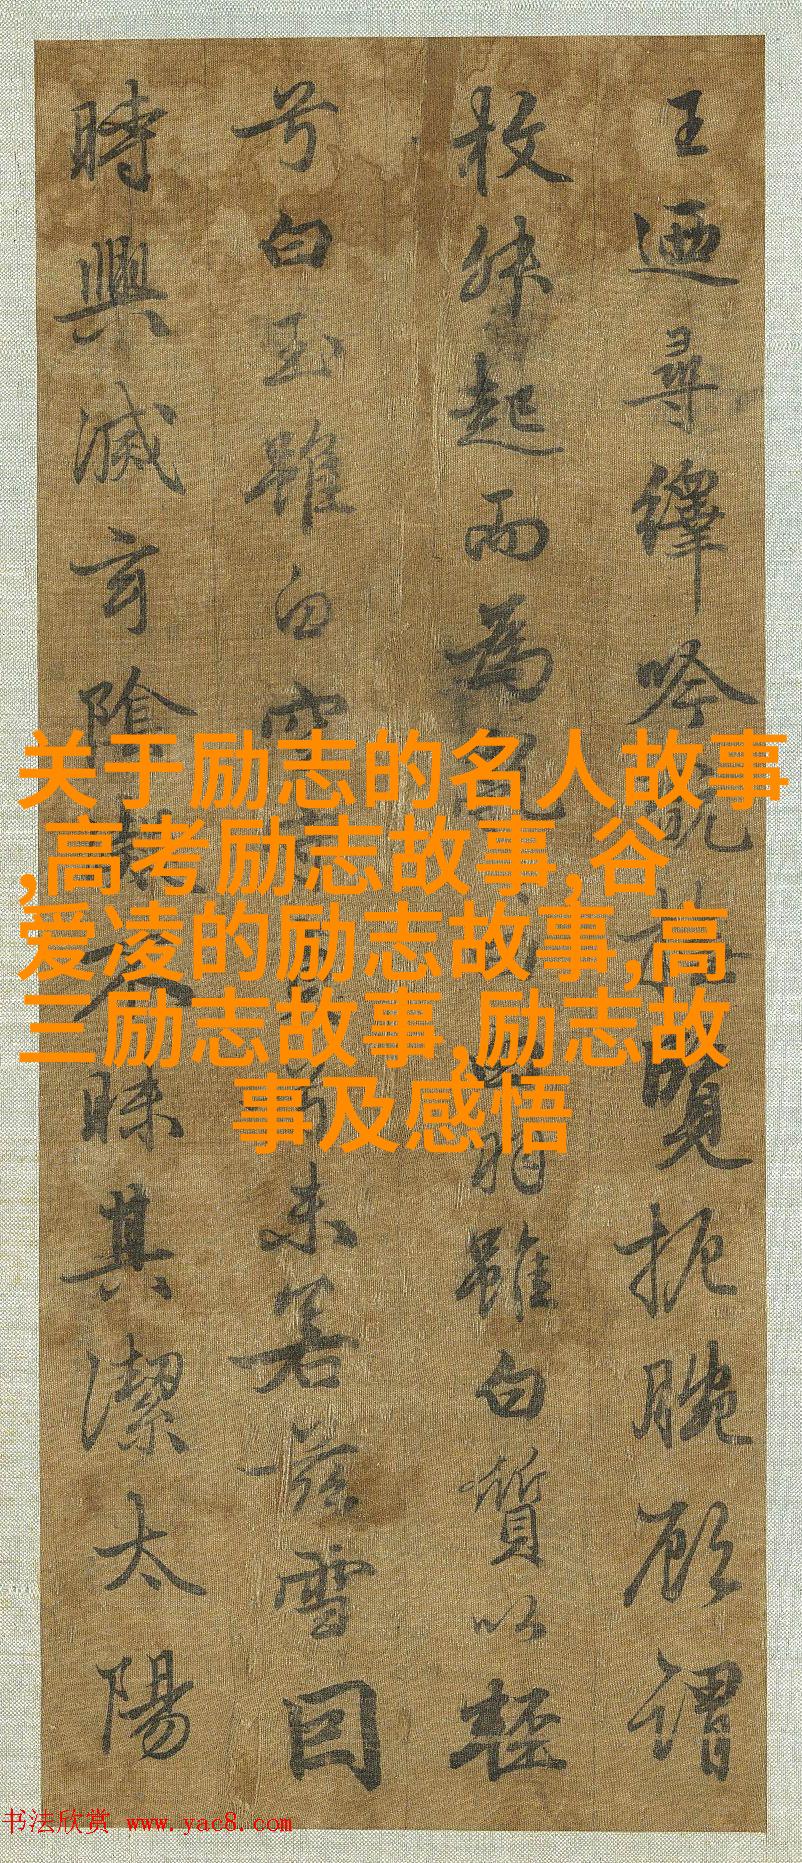 王迺尋繹吟翫覽扼腕顧謂
枚叔起而為羽雖白質以輕
兮白玉雖白空未若茲雪因
時興滅玄陰昧其潔太陽
关于励志的名人故事
,高考励志故事,谷
爱凌的励志故事,高
三励志故事,励志故
事及感悟
书法欣赏 www.yac8.com